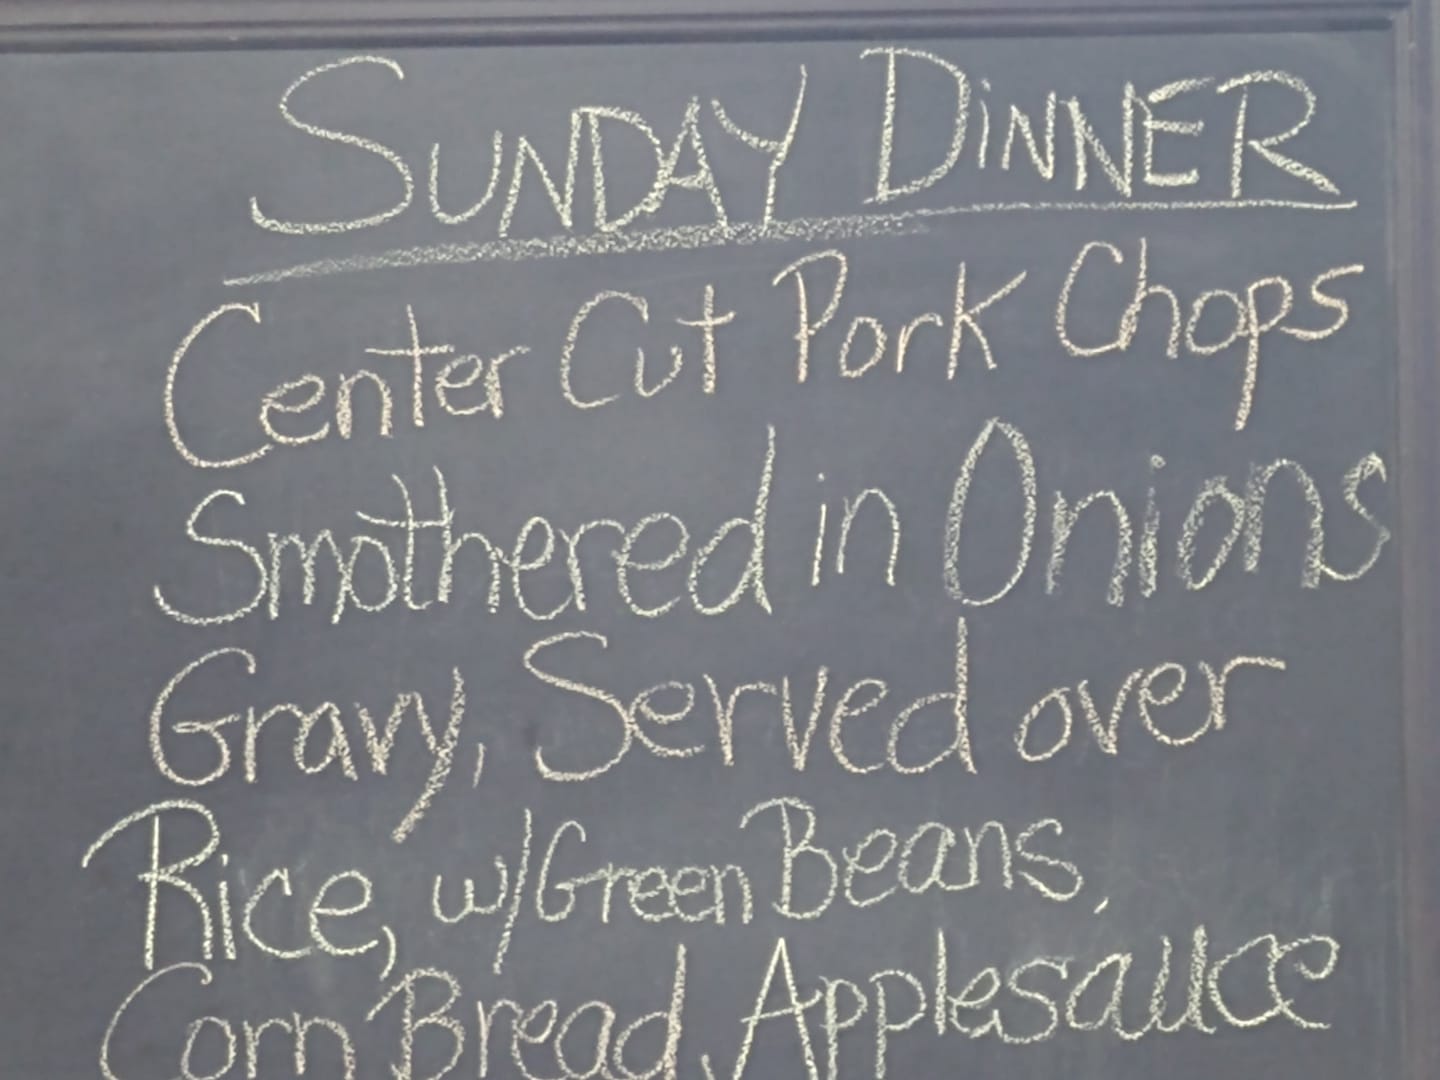 SUNDAY DINNER
Center Cut Pork Chops
Smothered in Onions
Gravy, Served over
Rice, w/Green Beans,
Corn Bread, Applesauce